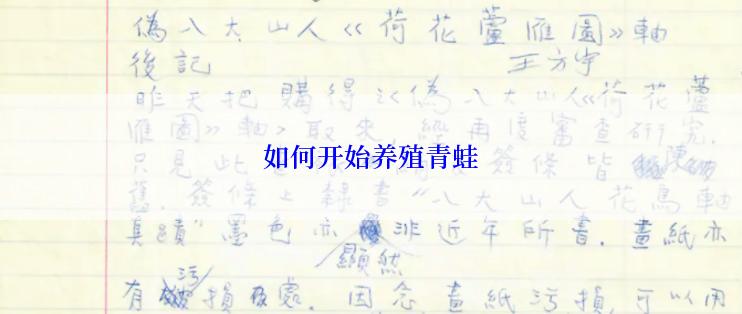 偽八大山人《荷花蘆雁圖》軸
後記 王方宇
昨天把購得之《偽八大山人《荷花蘆
雁圖》軸》取來,經再度審查研究.
只見此 簽條皆 陳
如何开始养殖青蛙
舊.簽條上隸書"八大山人花鳥軸
真蹟"墨色亦非近年所書.畫紙亦
顯然
有污損處.因念畫紙污損,可以用